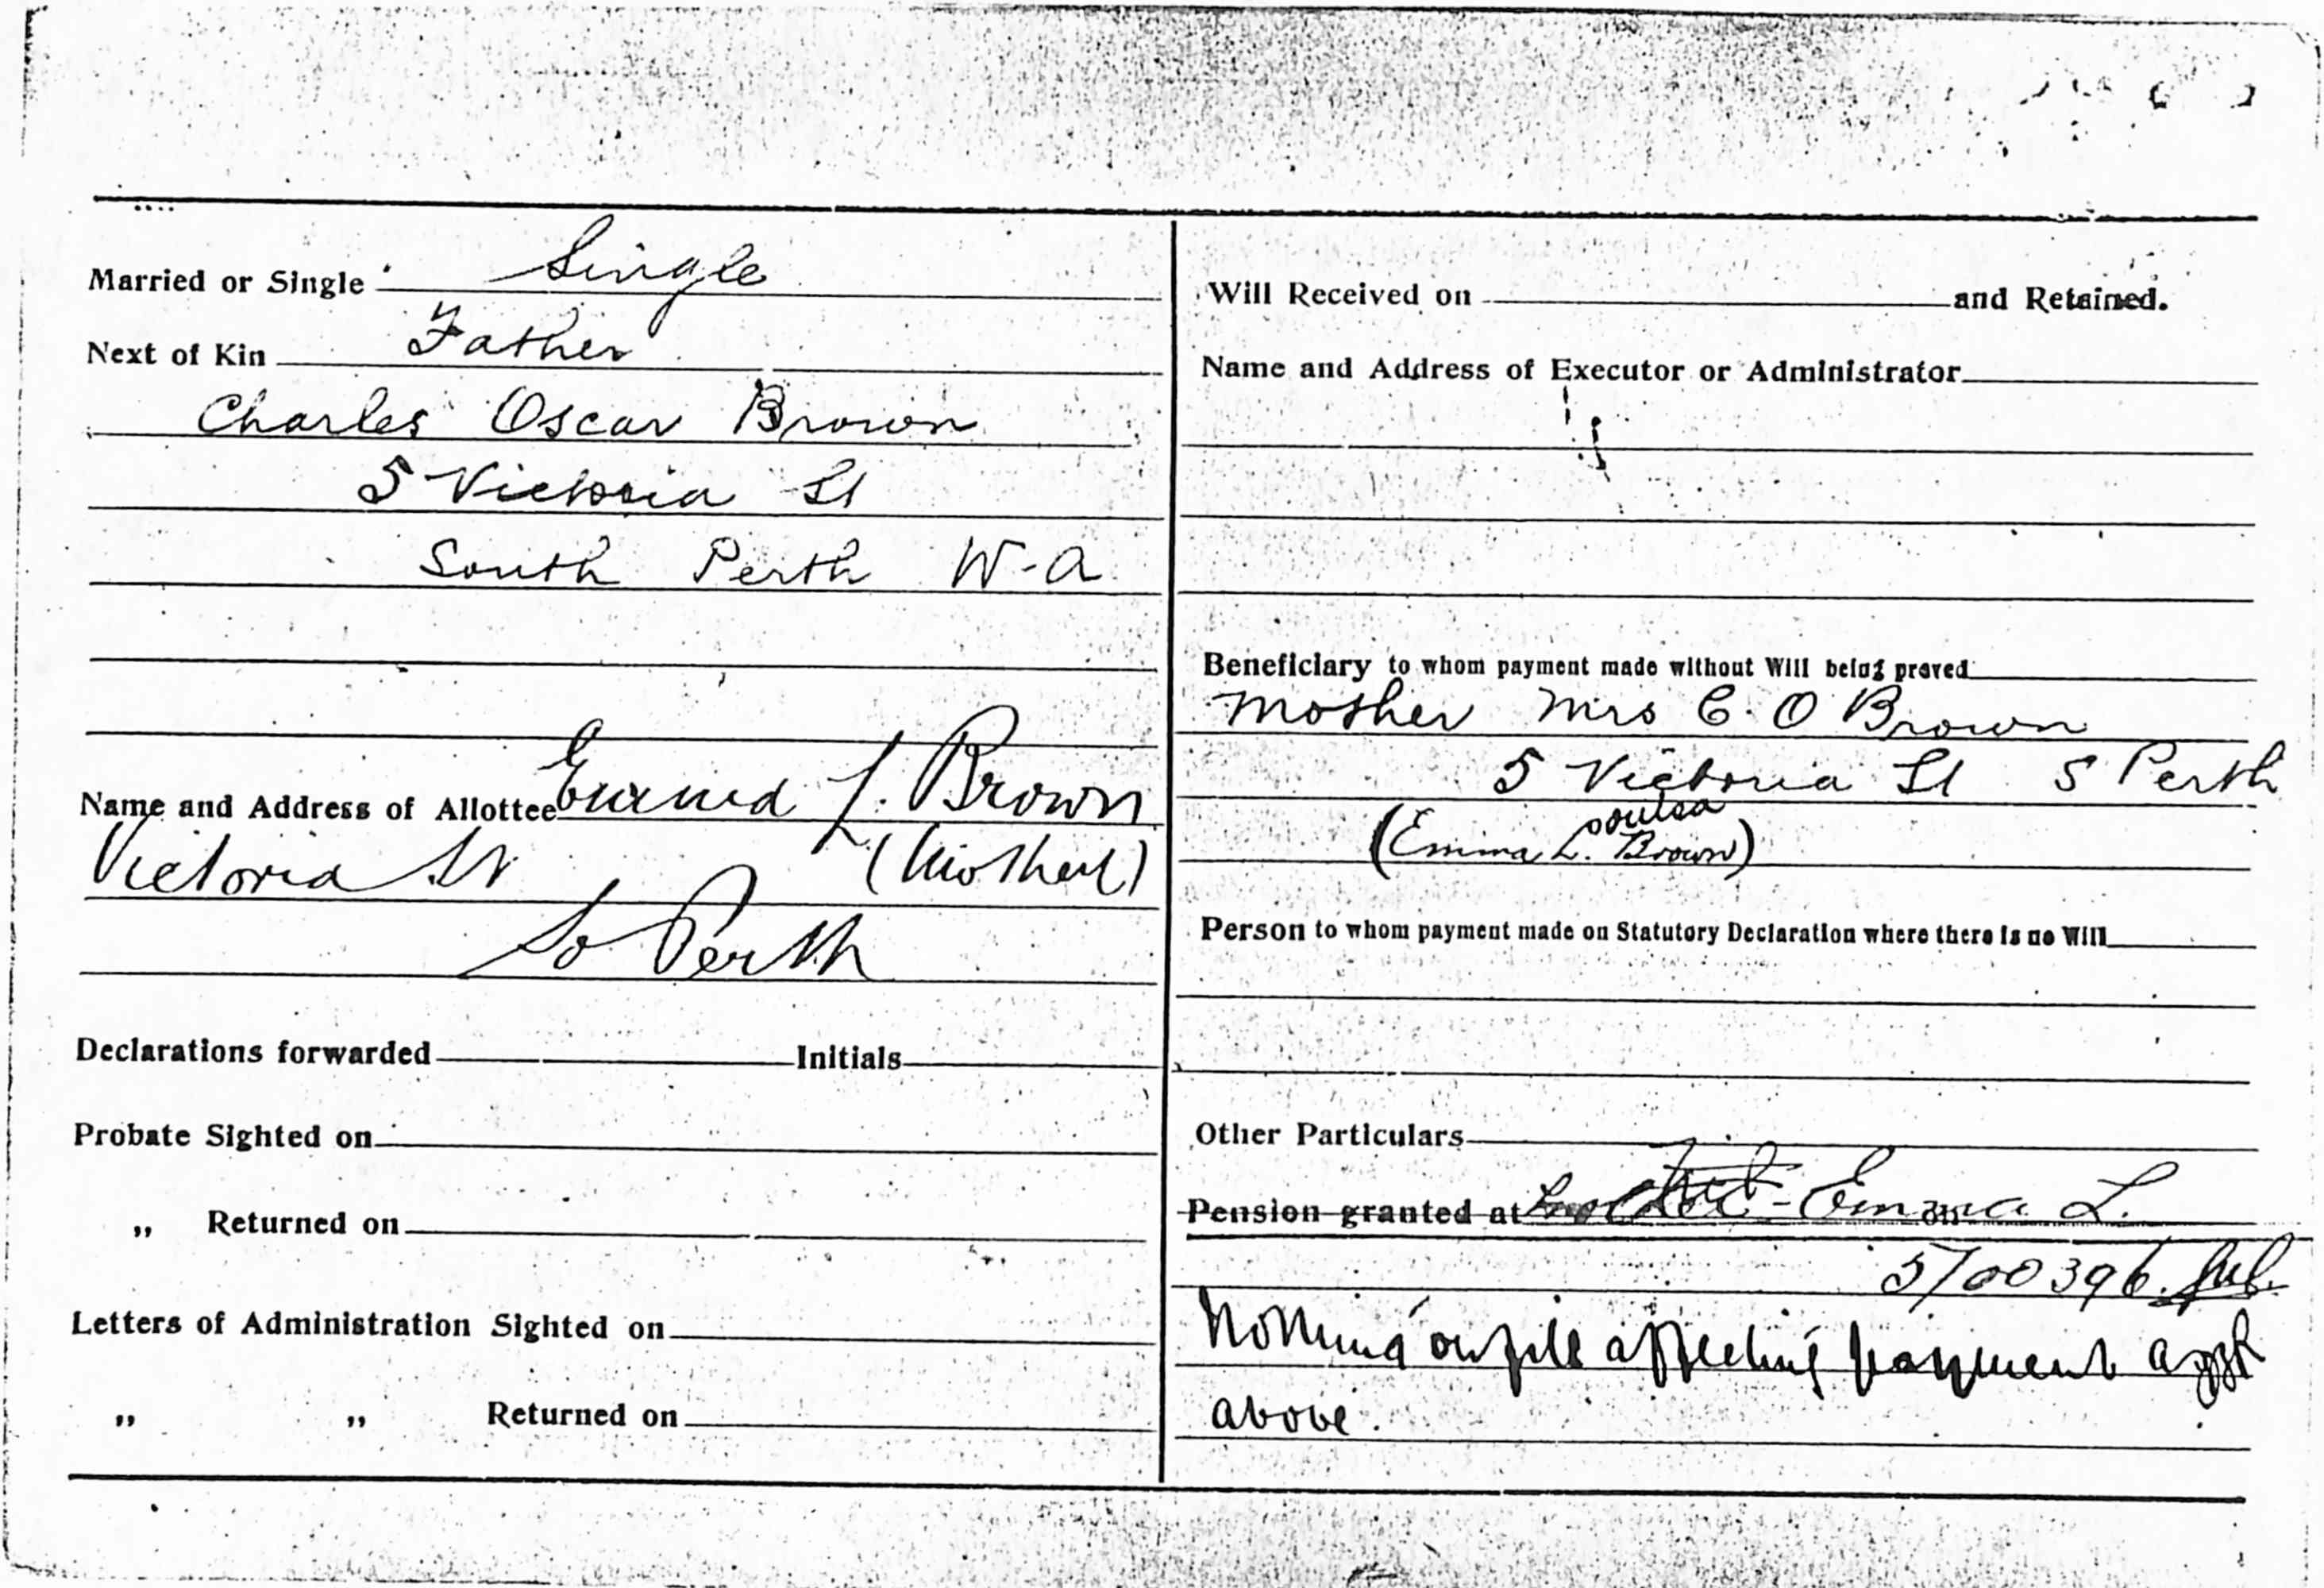 Married or Single Single
Next of Kin Father
Charles Oscar Brown
5 Victoria St
South Perth W-A
Name and Address of Allottee Emma L. Brown
Victoria St (Mother)
So Perth
Declarations forwarded Initials
Probate Sighted on
„ Returned on
Letters of Administration Sighted on
„ „ Returned on
Will Received on and Retained.
Name and Address of Executor or Administrator
Beneficiary to whom payment made without Will being proved
Mother Mrs C. O Brown
5 Victoria St S Perth
ouisa
(Emma L. Brown)
Person to whom payment made on Statutory Declaration where there is no Will
Other Particulars
Pension granted at Emma L.
5/00396
Nothing on file affecting payment
above.